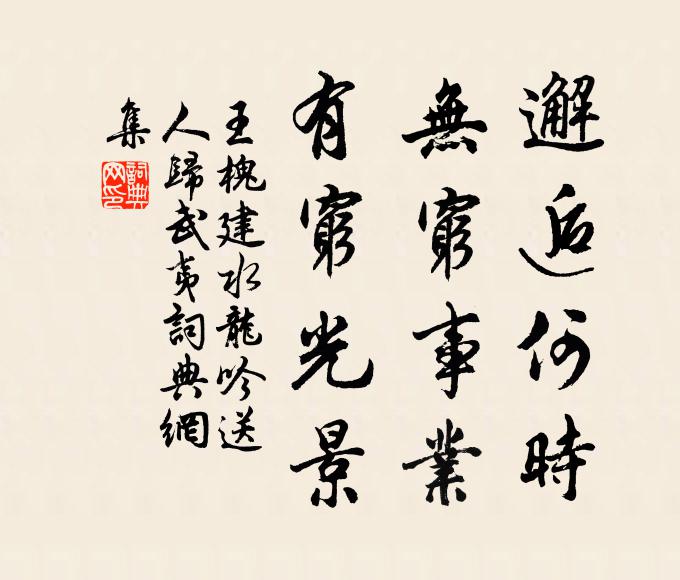 邂逅何時
無窮事業
有窮光景
王槐建水龍吟送
人歸武夷詞典網
集
詞典网印